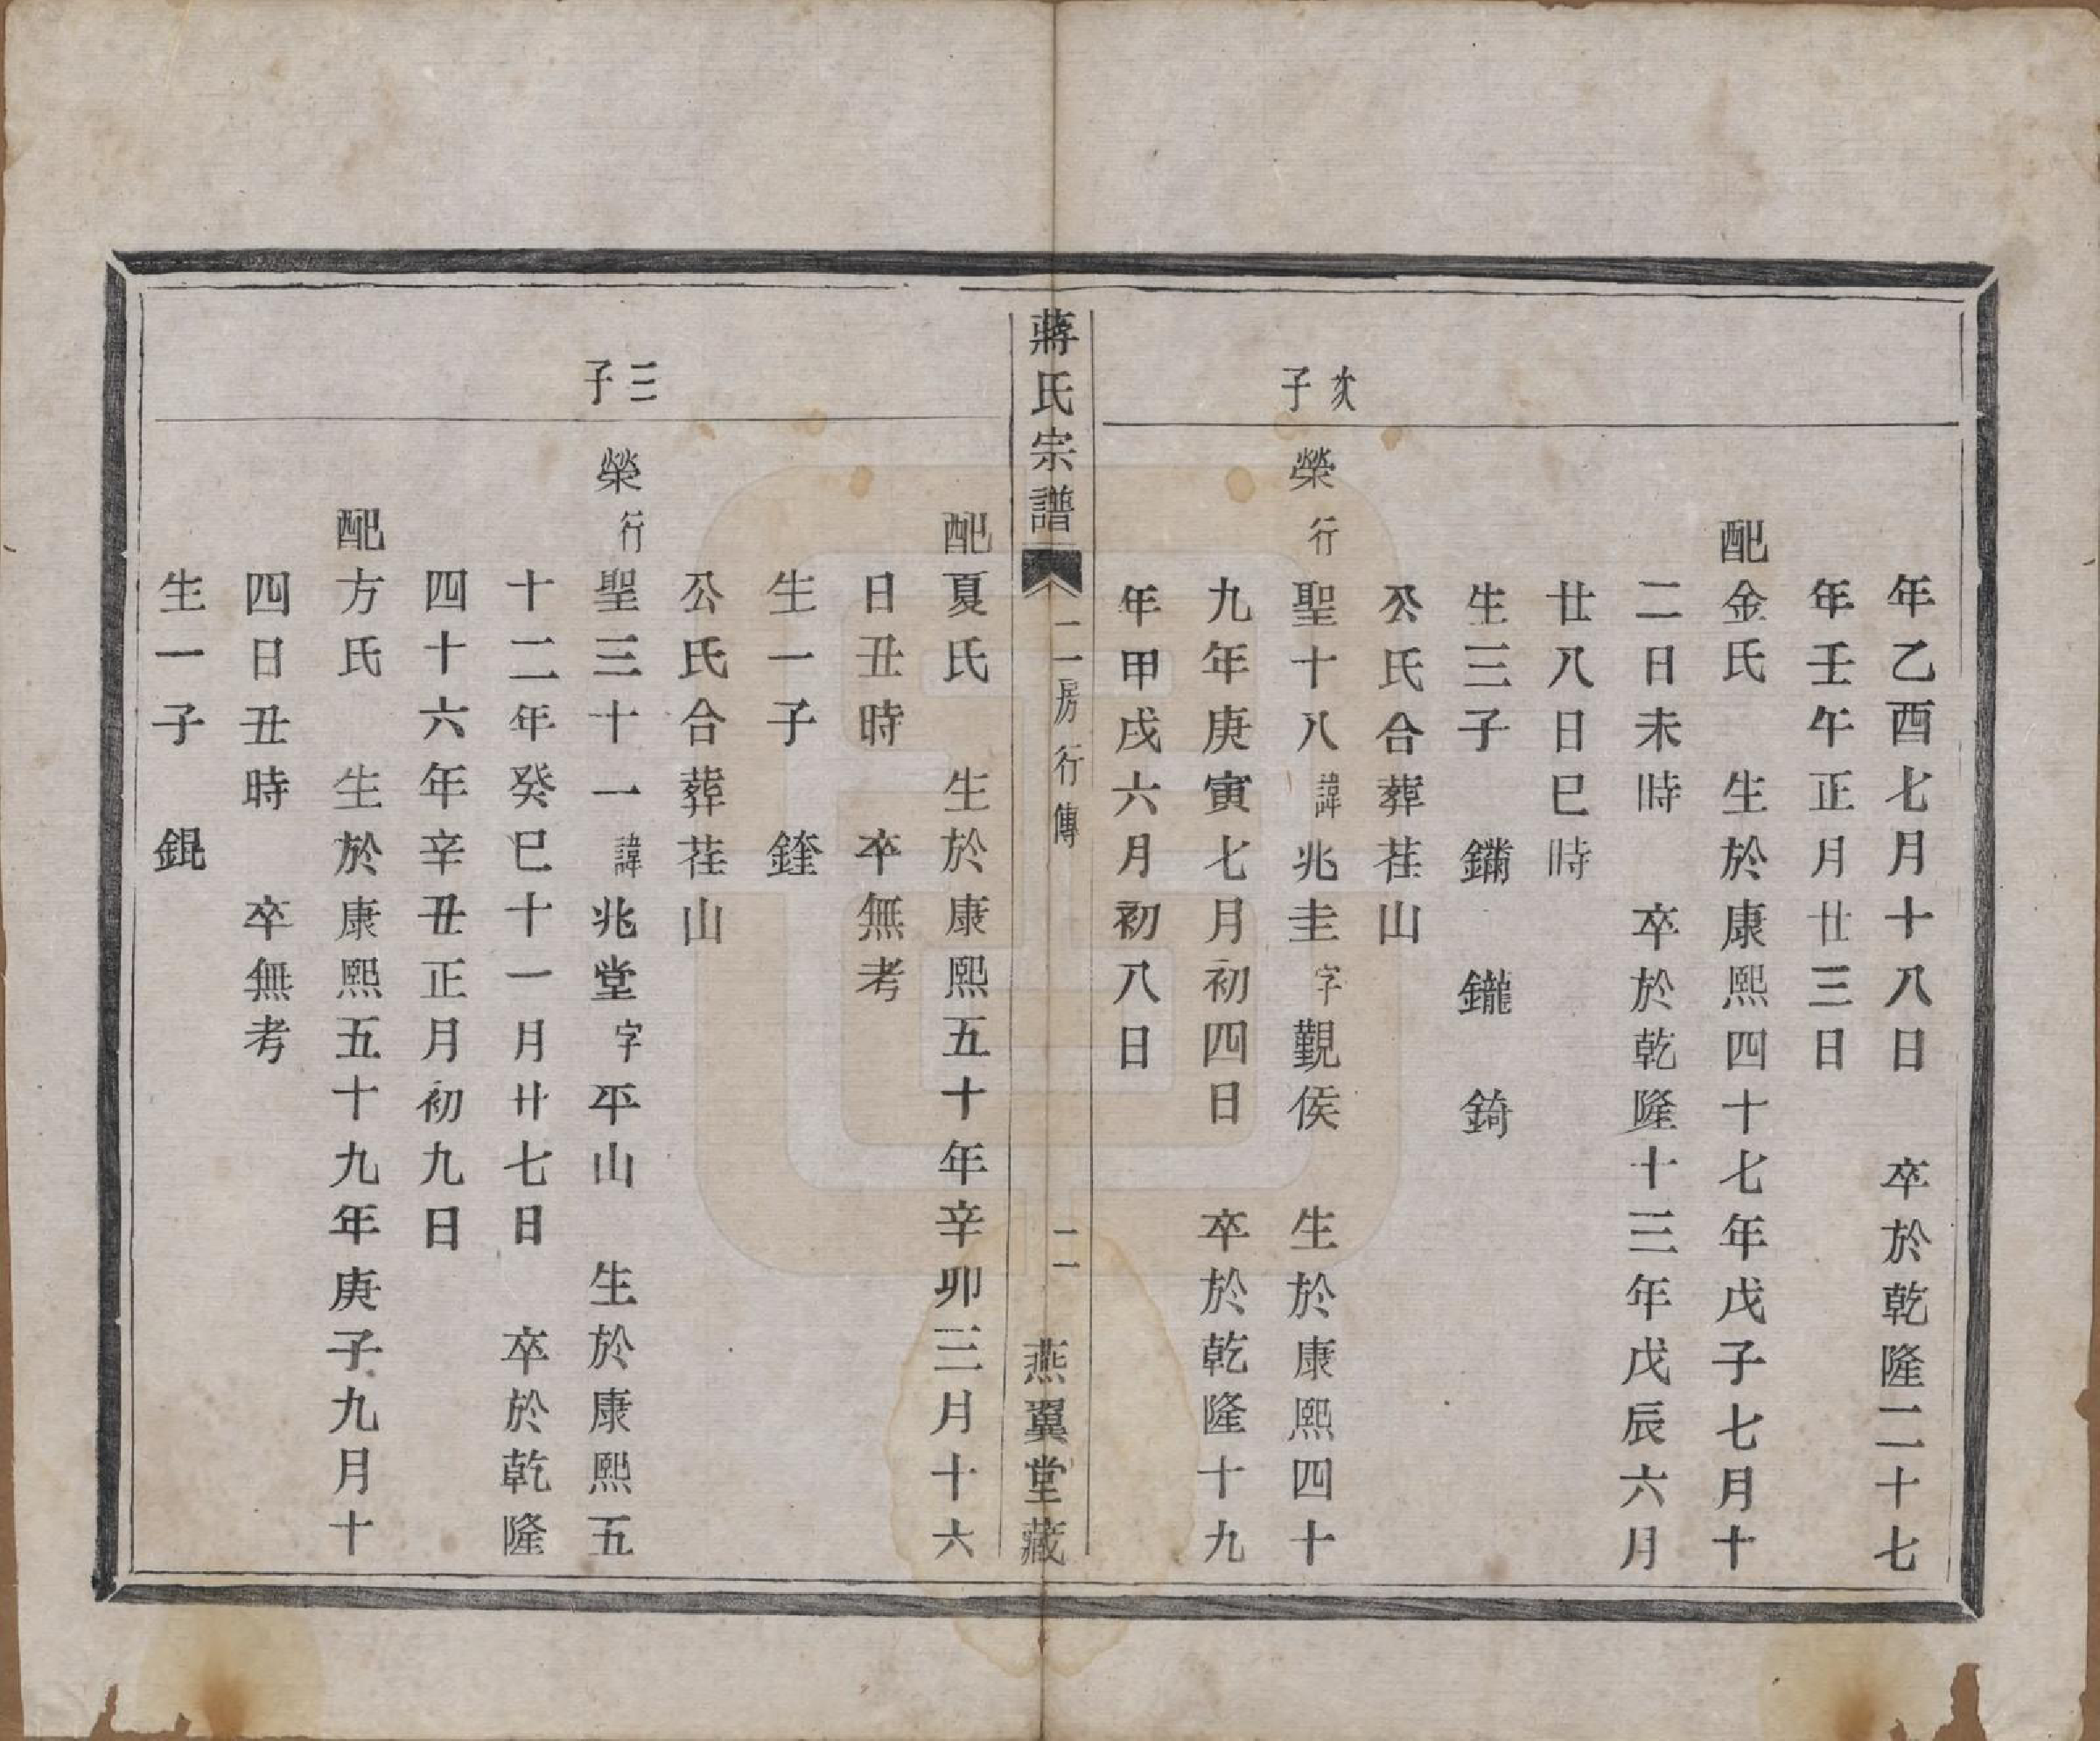 年乙酉七月十八日　卒於乾隆二十七
年壬午正月廿三日
配金氏　生於康熙四十七年戊子七月十
二日未時　卒於乾隆十三年戊辰六月
廿八日巳時
生三子　鏞　鑨　錡
公氏合葬茬山
次子
榮行聖十八諱兆圭字覲侯　生於康熙四十
九年庚寅七月初四日　卒於乾隆十九
年甲戌六月初八日
蔣氏宗譜　二房行傳　二　燕翼堂藏
配夏氏　生於康熙五十年辛卯三月十六
日丑時　卒無考
生一子　鍷
公氏合葬茬山
三子
榮行聖三十一諱兆堂字平山　生於康熙五
十二年癸巳十一月廿七日　卒於乾隆
四十六年辛丑正月初九日
配方氏　生於康熙五十九年庚子九月十
四日丑時　卒無考
生一子　錕